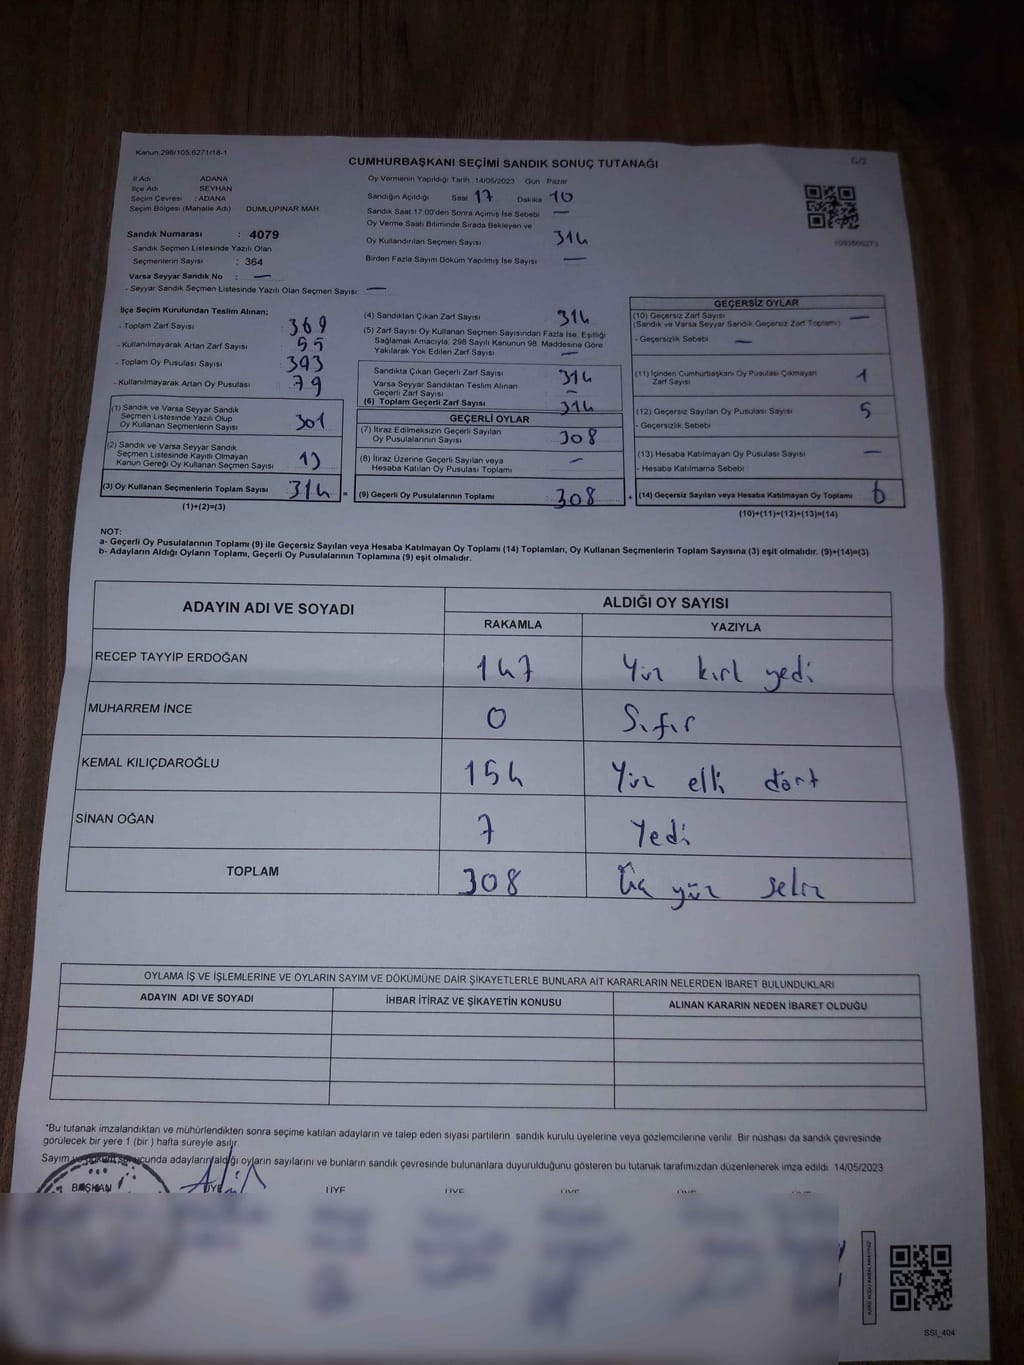 Kanun:298/105,6271/18-1
CUMHURBAŞKANI SEÇİMİ SANDIK SONUÇ TUTANAĞI
İl Adı ADANA
İlçe Adı SEYHAN
Seçim Çevresi : ADANA
Seçim Bölgesi (Mahalle Adı) DUMLUPINAR MAH.
Sandık Numarası : 4079
- Sandık Seçmen Listesinde Yazılı Olan
Seçmenlerin Sayısı : 364
Varsa Seyyar Sandık No : —
- Seyyar Sandık Seçmen Listesinde Yazılı Olan Seçmen Sayısı: —
Oy Vermenin Yapıldığı Tarih : 14/05/2023 Gün Pazar
Sandığın Açıldığı Saat 17 Dakika 10
Sandık Saat 17:00'den Sonra Açılmış İse Sebebi —
Oy Verme Saati Bitiminde Sırada Bekleyen ve
Oy Kullandırılan Seçmen Sayısı 314
Birden Fazla Sayım Döküm Yapılmış İse Sayısı —
İlçe Seçim Kurulundan Teslim Alınan;
- Toplam Zarf Sayısı 369
- Kullanılmayarak Artan Zarf Sayısı 55
- Toplam Oy Pusulası Sayısı 393
- Kullanılmayarak Artan Oy Pusulası 79
(1) Sandık ve Varsa Seyyar Sandık
Seçmen Listesinde Yazılı Olup
Oy Kullanan Seçmenlerin Sayısı 301
(2) Sandık ve Varsa Seyyar Sandık
Seçmen Listesinde Kayıtlı Olmayan
Kanun Gereği Oy Kullanan Seçmen Sayısı 13
(3) Oy Kullanan Seçmenlerin Toplam Sayısı 314 =
(1)+(2)=(3)
(4) Sandıktan Çıkan Zarf Sayısı 314
(5) Zarf Sayısı Oy Kullanan Seçmen Sayısından Fazla İse, Eşitliği
Sağlamak Amacıyla; 298 Sayılı Kanunun 98. Maddesine Göre
Yakılarak Yok Edilen Zarf Sayısı —
Sandıkta Çıkan Geçerli Zarf Sayısı 314
Varsa Seyyar Sandıktan Teslim Alınan
Geçerli Zarf Sayısı —
(6) Toplam Geçerli Zarf Sayısı 314
GEÇERLİ OYLAR
(7) İtiraz Edilmeksizin Geçerli Sayılan
Oy Pusulalarının Sayısı 308
(8) İtiraz Üzerine Geçerli Sayılan veya
Hesaba Katılan Oy Pusulası Toplamı —
(9) Geçerli Oy Pusulalarının Toplamı 308 +
GEÇERSİZ OYLAR
(10) Geçersiz Zarf Sayısı —
(Sandık ve Varsa Seyyar Sandık Geçersiz Zarf Toplamı)
- Geçersizlik Sebebi —
(11) İçinden Cumhurbaşkanı Oy Pusulası Çıkmayan
Zarf Sayısı 1
(12) Geçersiz Sayılan Oy Pusulası Sayısı 5
- Geçersizlik Sebebi
(13) Hesaba Katılmayan Oy Pusulası Sayısı —
- Hesaba Katılmama Sebebi
(14) Geçersiz Sayılan veya Hesaba Katılmayan Oy Toplamı 6
(10)+(11)+(12)+(13)=(14)
NOT:
a- Geçerli Oy Pusulalarının Toplamı (9) ile Geçersiz Sayılan veya Hesaba Katılmayan Oy Toplamı (14) Toplamları, Oy Kullanan Seçmenlerin Toplam Sayısına (3) eşit olmalıdır. (9)+(14)=(3)
b- Adayların Aldığı Oyların Toplamı, Geçerli Oy Pusulalarının Toplamına (9) eşit olmalıdır.
ADAYIN ADI VE SOYADI ALDIĞI OY SAYISI
RAKAMLA YAZIYLA
RECEP TAYYİP ERDOĞAN 147 Yüz kırk yedi
MUHARREM İNCE 0 Sıfır
KEMAL KILIÇDAROĞLU 154 Yüz elli dört
SİNAN OĞAN 7 Yedi
TOPLAM 308 Üç yüz sekiz
OYLAMA İŞ VE İŞLEMLERİNE VE OYLARIN SAYIM VE DÖKÜMÜNE DAİR ŞİKAYETLERLE BUNLARA AİT KARARLARIN NELERDEN İBARET BULUNDUKLARI
ADAYIN ADI VE SOYADI İHBAR İTİRAZ VE ŞİKAYETİN KONUSU ALINAN KARARIN NEDEN İBARET OLDUĞU
*Bu tutanak imzalandıktan ve mühürlendikten sonra seçime katılan adayların ve talep eden siyasi partilerin sandık kurulu üyelerine veya gözlemcilerine verilir. Bir nüshası da sandık çevresinde
görülecek bir yere 1 (bir ) hafta süreyle asılır.
Sayım ve döküm sonucunda adayların aldığı oyların sayılarını ve bunların sandık çevresinde bulunanlara duyurulduğunu gösteren bu tutanak tarafımızdan düzenlenerek imza edildi. 14/05/2023
BAŞKAN ÜYE ÜYE ÜYE ÜYE ÜYE ÜYE
SSI_404